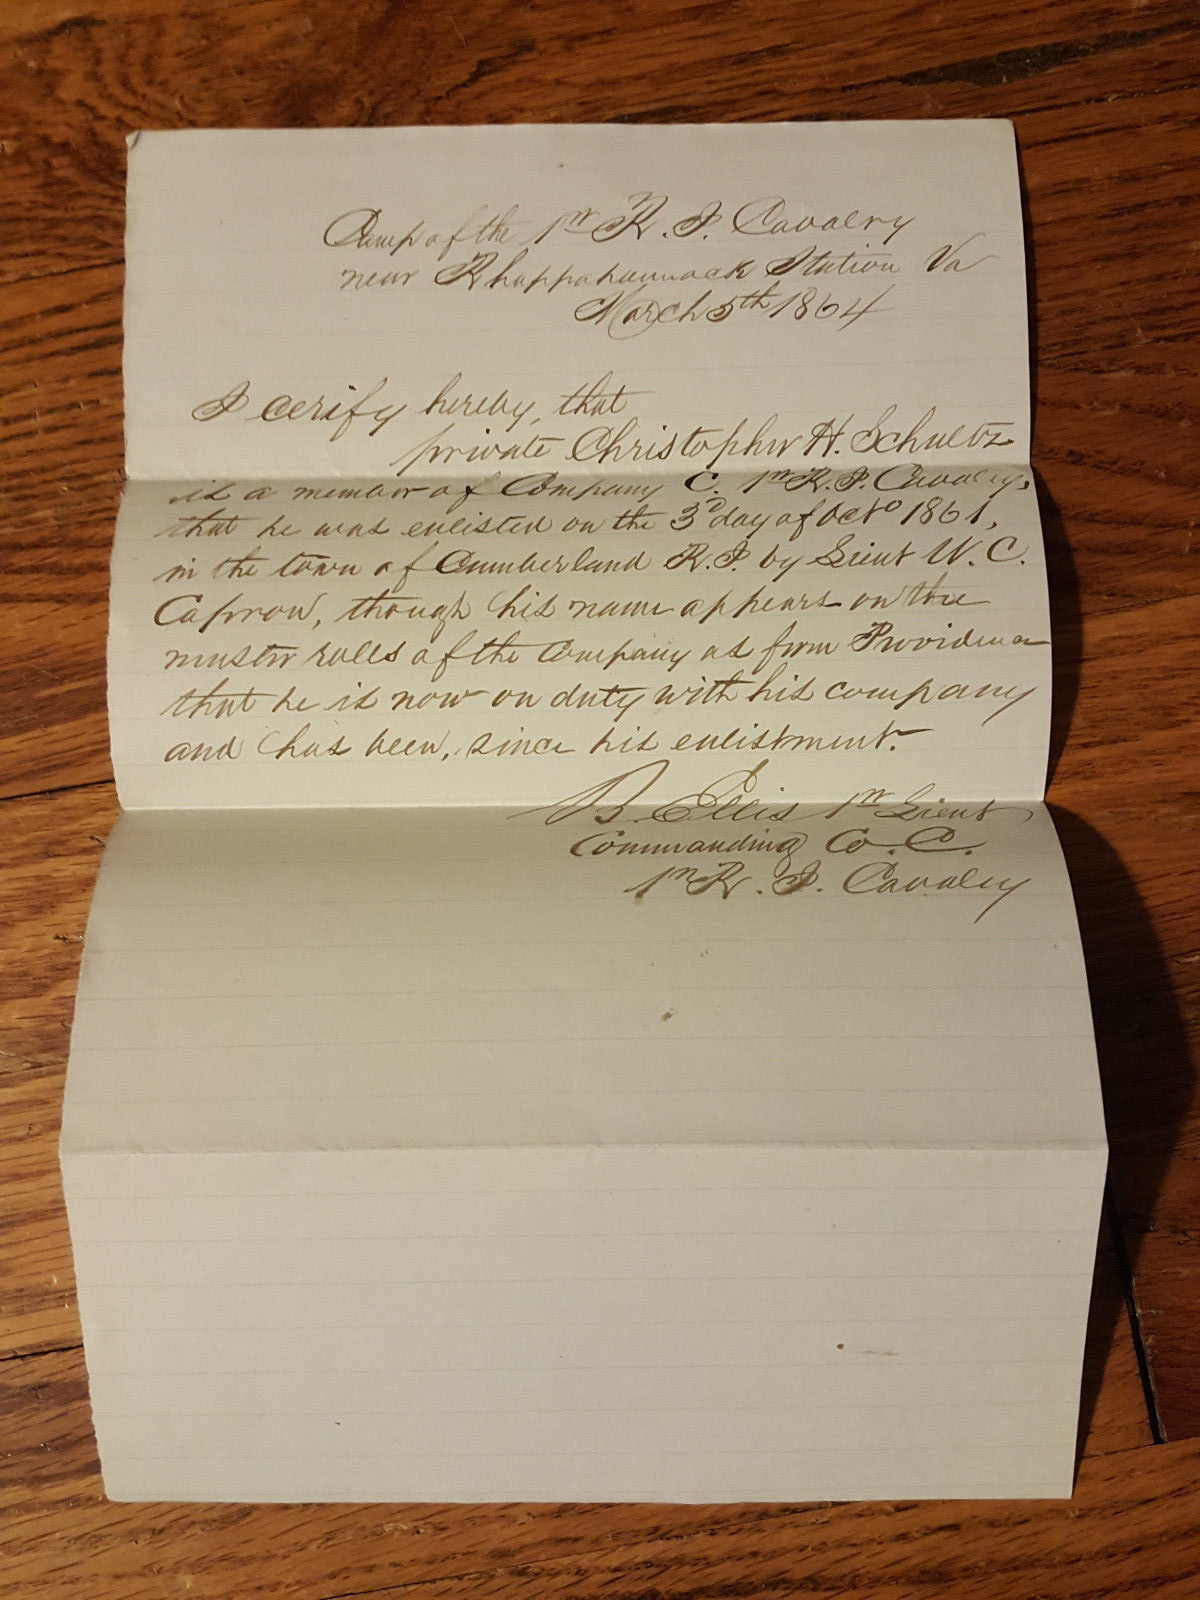 Camp of the 1st R. I. Cavalry
near Rhappahannack Station Va
March 5th 1864
I cerify hereby, that
private Christopher H. Schultz
is a member of Company C. 1st R. I. Cavalry,
that he was enlisted on the 3d day of Octo 1861,
in the town of Cumberland R. I. by Lieut W. C.
Capron, though his name appears on the
muster rolls of the Company as from Providence
that he is now on duty with his company
and has been, since his enlistment.
B. Ellis 1st Lieut
Commanding Co. C.
1st R. I. Cavalry